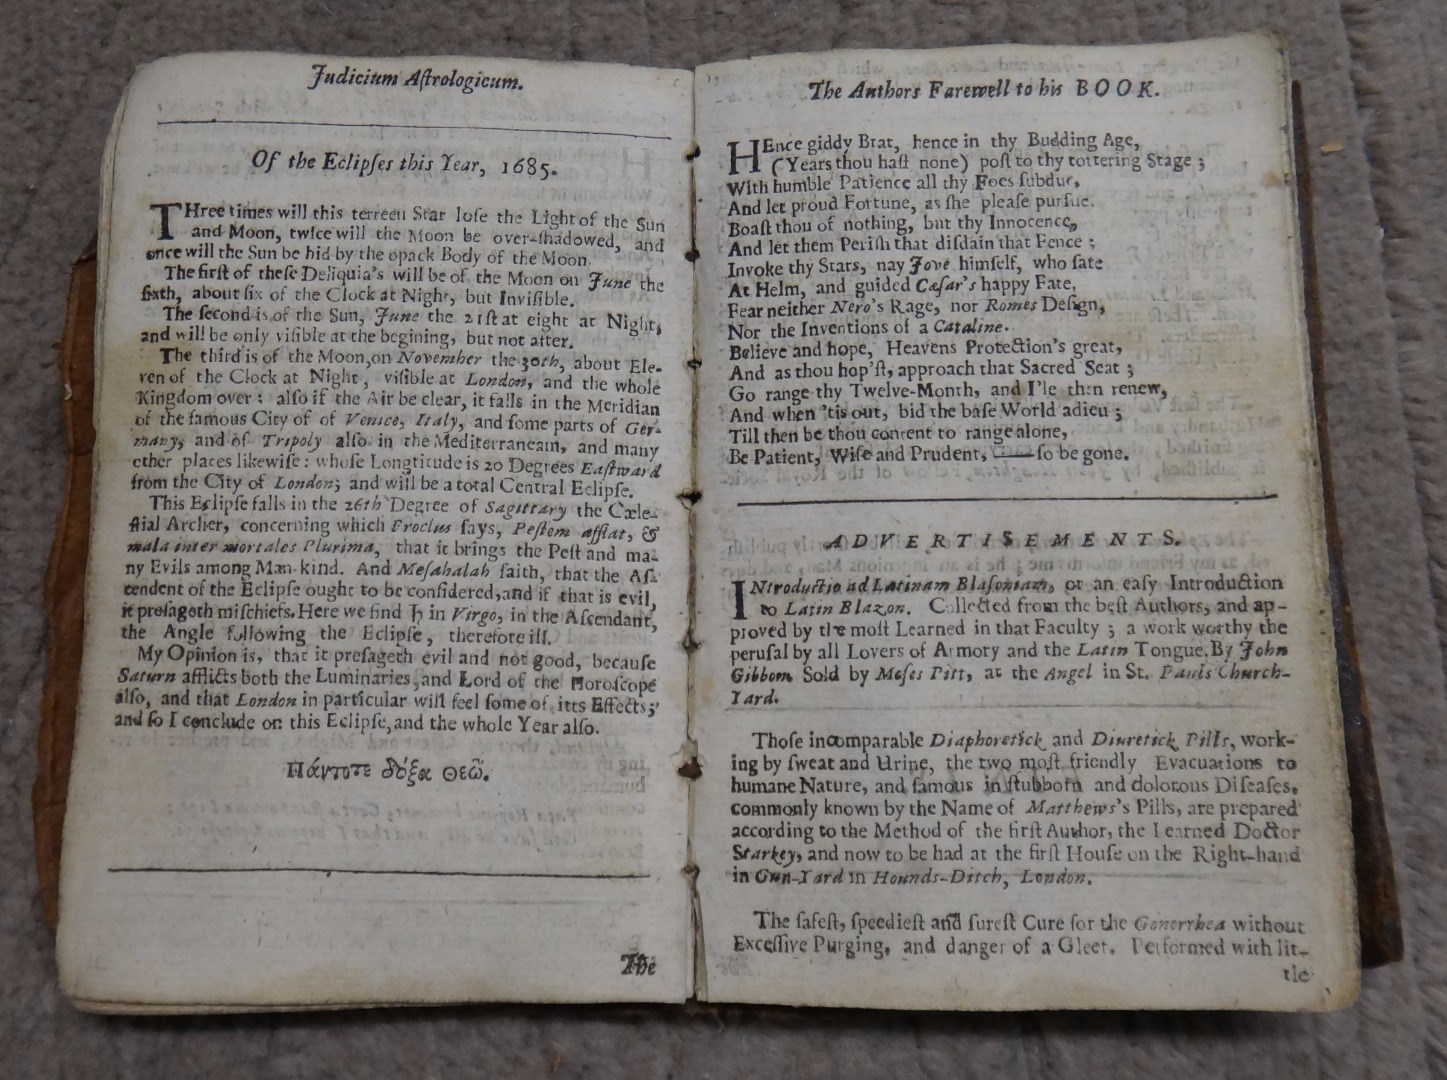 Judicium Aſtrologicum.
Of the Eclipſes this Year, 1685.
THree times will this terreen Star loſe the Light of the Sun
and Moon, twice will the Moon be over-ſhadowed, and
once will the Sun be hid by the opack Body of the Moon.
The firſt of theſe Deliquia's will be of the Moon on June the
ſixth, about ſix of the Clock at Night, but Inviſible.
The ſecond is of the Sun, June the 21ſt at eight at Night,
and will be only viſible at the begining, but not after.
The third is of the Moon, on November the 30th, about Ele-
ven of the Clock at Night, viſible at London, and the whole
Kingdom over: alſo if the Air be clear, it falls in the Meridian
of the famous City of of Venice, Italy, and ſome parts of Ger-
many, and of Tripoly alſo in the Mediterraneam, and many
other places likewiſe: whoſe Longtitude is 20 Degrees Eaſtward
from the City of London; and will be a total Central Eclipſe.
This Eclipſe falls in the 26th Degree of Sagittary the Cæle-
ſtial Archer, concerning which Proclus ſays, Peſtem afflat, &
mala inter mortales Plurima, that it brings the Peſt and ma-
ny Evils among Man-kind. And Meſahalah ſaith, that the Aſ-
cendent of the Eclipſe ought to be conſidered, and if that is evil,
it preſageth miſchiefs. Here we find ♄ in Virgo, in the Aſcendant,
the Angle following the Eclipſe, therefore ill.
My Opinion is, that it preſageth evil and not good, becauſe
Saturn afflicts both the Luminaries, and Lord of the Horoſcope
alſo, and that London in particular will feel ſome of itts Effects;
and ſo I conclude on this Eclipſe, and the whole Year alſo.
Πάντοτε δόξα Θεῷ.
The
The Authors Farewell to his BOOK.
HEnce giddy Brat, hence in thy Budding Age,
(Years thou haſt none) poſt to thy tottering Stage;
With humble Patience all thy Foes ſubdue,
And let proud Fortune, as ſhe pleaſe purſue.
Boaſt thou of nothing, but thy Innocence,
And let them Periſh that diſdain that Fence;
Invoke thy Stars, nay Jove himſelf, who ſate
At Helm, and guided Cæſar's happy Fate,
Fear neither Nero's Rage, nor Romes Deſign,
Nor the Inventions of a Cataline.
Believe and hope, Heavens Protection's great,
And as thou hop'ſt, approach that Sacred Seat;
Go range thy Twelve-Month, and I'le then renew,
And when 'tis out, bid the baſe World adieu;
Till then be thou content to range alone,
Be Patient, Wiſe and Prudent, —— ſo be gone.
ADVERTISEMENTS.
INtroductio ad Latinam Blaſoniam, or an eaſy Introduction
to Latin Blazon. Collected from the beſt Authors, and ap-
proved by the moſt Learned in that Faculty; a work worthy the
peruſal by all Lovers of Armory and the Latin Tongue. By John
Gibbon. Sold by Moſes Pitt, at the Angel in St. Pauls Church-
Yard.
Thoſe incomparable Diaphoretick and Diuretick Pills, work-
ing by ſweat and Urine, the two moſt friendly Evacuations to
humane Nature, and famous in ſtubborn and dolorous Diſeaſes,
commonly known by the Name of Matthews's Pills, are prepared
according to the Method of the firſt Author, the Learned Doctor
Starkey, and now to be had at the firſt Houſe on the Right-hand
in Gun-Yard in Hounds-Ditch, London.
The ſafeſt, ſpeedieſt and ſureſt Cure for the Gonorrhea without
Exceſſive Purging, and danger of a Gleet. Performed with lit-
tle